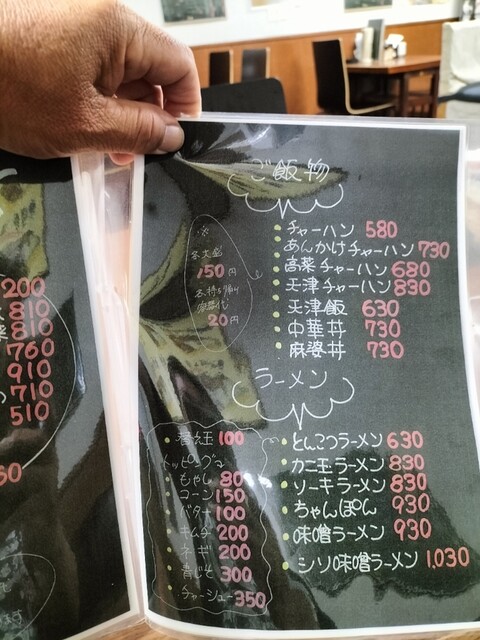 200
810
810
760
910
710
510
60
ご飯物
チャーハン 580
あんかけチャーハン 730
高菜チャーハン 680
天津チャーハン 830
天津飯 630
中華丼 730
麻婆丼 730
※
各大盛
150円
各持ち帰り
容器代
20円
ラーメン
替え玉 100
トッピング
もやし 80
コーン 150
バター 100
キムチ 200
ネギ 200
青じそ 300
チャーシュー 350
とんこつラーメン 630
カニ玉ラーメン 830
ソーキラーメン 830
ちゃんぽん 930
味噌ラーメン 930
シソ味噌ラーメン 1,030